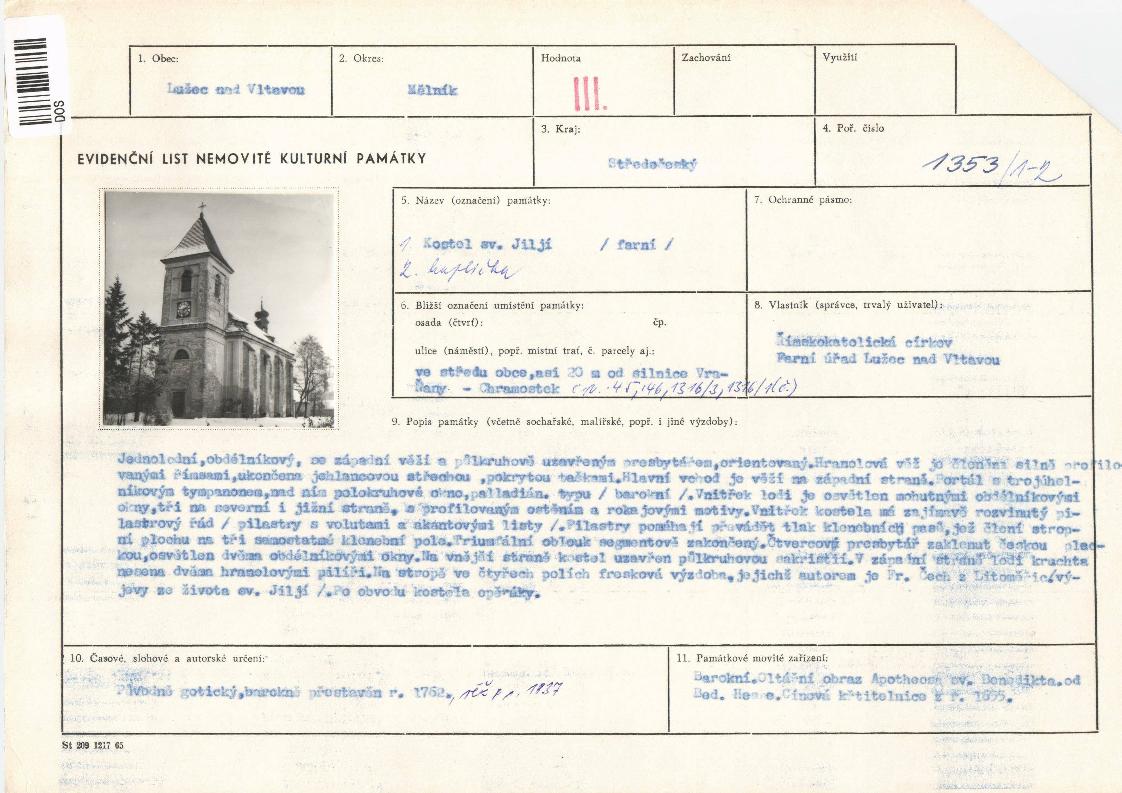 DOS
1. Obec:
Lužec nad Vltavou
2. Okres:
Mělník
Hodnota
III.
Zachování
Využití
EVIDENČNÍ LIST NEMOVITÉ KULTURNÍ PAMÁTKY
3. Kraj:
Středočeský
4. Poř. číslo
1353/1-2
5. Název (označení) památky:
1. Kostel sv. Jiljí / farní /
2. kaplička
7. Ochranné pásmo:
6. Bližší označení umístění památky:
osada (čtvrť): čp.
ulice (náměstí), popř. místní trať, č. parcely aj.:
ve středu obce,asi 20 m od silnice Vra-
ňany - Chramostek č.p. 45, 46, 1316/3, 1316/1(č.)
8. Vlastník (správce, trvalý uživatel):
Římskokatolická církev
Farní úřad Lužec nad Vltavou
9. Popis památky (včetně sochařské, malířské, popř. i jiné výzdoby):
Jednolodní,obdélníkový, se západní věží a půlkruhově uzavřeným presbytářem,orientovaný.Hranolová věž je členěna silně profilo-
vanými římsami,ukončena jehlancovou střechou ,pokrytou taškami.Hlavní vchod je věží na západní straně.Portál s trojúhel-
níkovým tympanonem,nad ním polokruhové okno,palladián. typu / barokní /.Vnitřek lodi je osvětlen mohutnými obdélníkovými
okny,tři na severní i jižní straně, s profilovaným ostěním a rokajovými motivy.Vnitřek kostela má zajímavě rozvinutý pi-
lastrový řád / pilastry s volutami a akantovými listy /.Pilastry pomáhají převádět tlak klenebních pasů,jež člení strop-
ní plochu na tři samostatné klenební pole.Triumfální oblouk segmentově zakončený.Čtvercový presbytář zaklenut českou plac-
kou,osvětlen dvěma obdélníkovými okny.Na vnější straně kostel uzavřen půlkruhovou sakristií.V západní straně lodi kruchta
nesena dvěma hranolovými pilíři.Na stropě ve čtyřech polích fresková výzdoba,jejichž autorem je Fr. Čech z Litoměřic/vý-
jevy ze života sv. Jiljí /.Po obvodu kostela opěráky.
10. Časové, slohové a autorské určení:
Původně gotický,barokně přestavěn r. 1762., věž z r. 1937
11. Památkové movité zařízení:
Barokní.Oltářní obraz Apotheosa sv. Benedikta.od
Bed. Hesse.Cínová křtitelnice z r. 1655.
St 209 1217 65